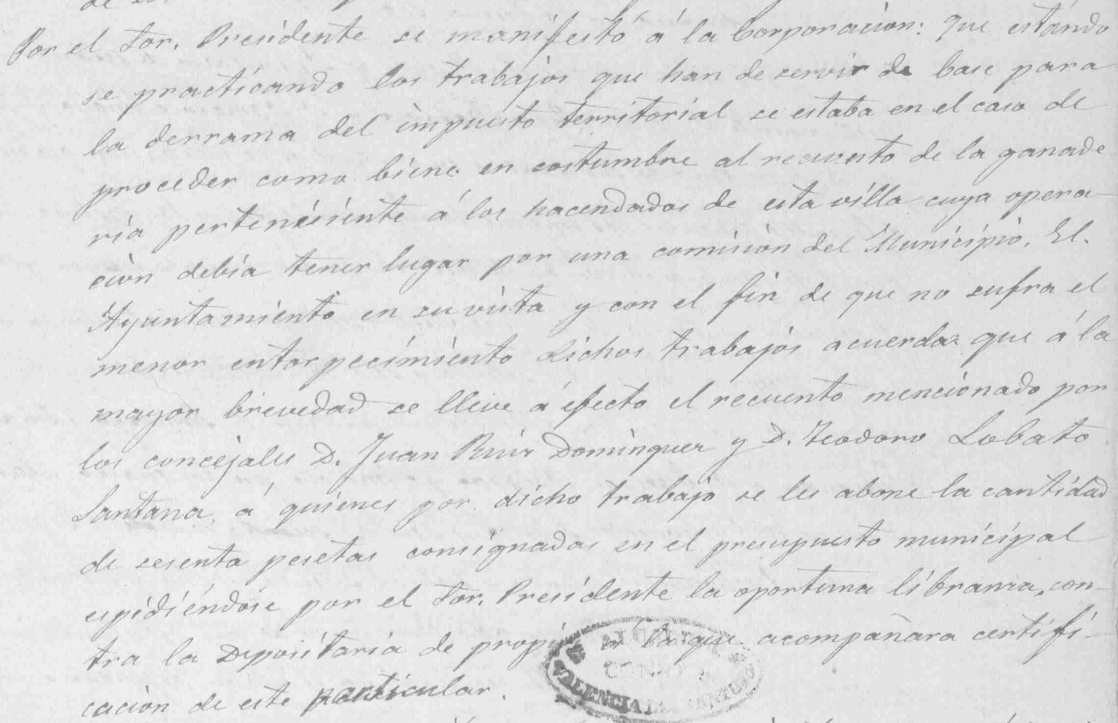 Por el Sor. Presidente se manifestó á la Corporacion: que estando
se practicando los trabajos que han de servir de base para
la derrama del impuesto territorial se estaba en el caso de
proceder como biene en costumbre al recuento de la ganade
ria pertenesiente á los hacendados de esta villa cuya opera
cion debia tener lugar por una comision del Municipio. El
Ayuntamiento en su vista y con el fin de que no sufra el
menor entorpecimiento dichos trabajos acuerda: que á la
mayor brevedad se lleve á efecto el recuento mencionado por
los concejales D. Juan Ruiz Dominguez y D. Teodoro Lobato
Santana, á quienes por dicho trabajo se les abone la cantidad
de sesenta pesetas consignadas en el presupuesto municipal
espidiéndose por el Sor. Presidente la oportuna libranza, con-
tra la Depositaría de propios á la que acompañara certifi-
cacion de este particular.
ALCALDIA
VALENCIA